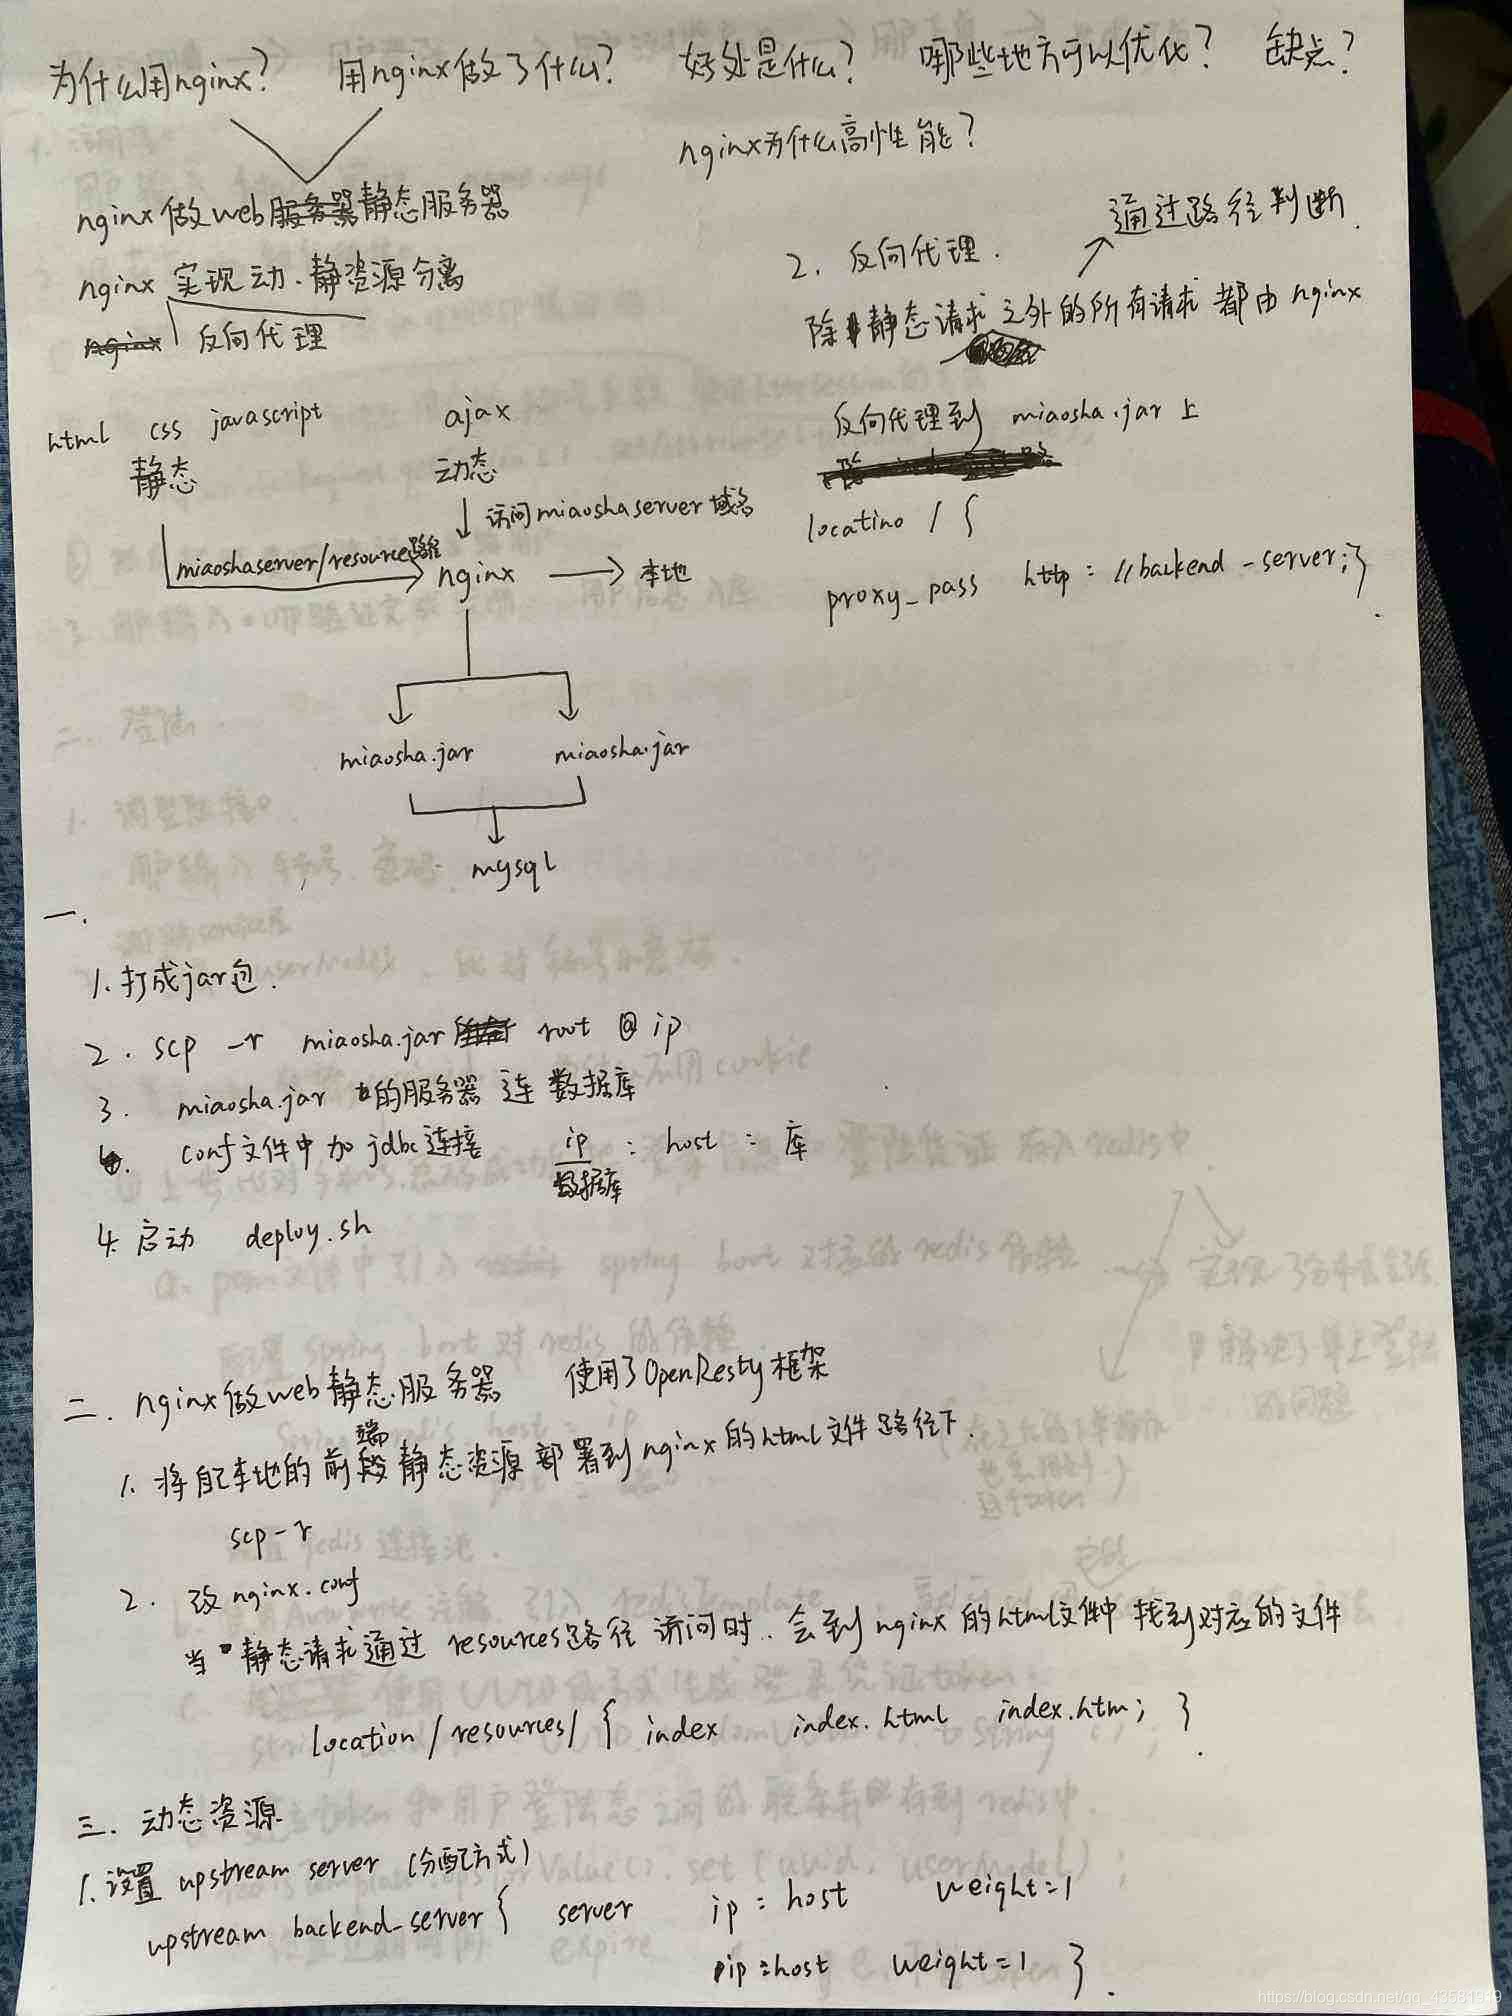 为什么用nginx? 用nginx做了什么? 好处是什么? 哪些地方可以优化? 缺点?
nginx为什么高性能?
nginx做web服务器静态服务器
nginx 实现动.静资源分离
nginx 反向代理
html css javascript
静态
ajax
动态
访问miaoshaserver域名
miaoshaserver/resource路径
nginx
本地
miaosha.jar miaosha.jar
mysql
通过路径判断.
2. 反向代理.
除静态请求之外的所有请求都由nginx
反向代理到 miaosha.jar上
locatino / {
proxy_pass http: //backend-server;}
一.
1.打成jar包.
2. scp -r miaosha.jar root @ ip
3. miaosha.jar 的服务器 连 数据库
conf文件中加 jdbc连接 ip : host : 库
数据库
4. 启动 deploy.sh
二. nginx做web静态服务器 使用了OpenResty框架
1. 将自己本地的前段静态资源部署到nginx的html文件路径下.
端
scp-r
2. 改nginx.conf
当静态请求通过 resources路径 访问时. 会到nginx的html文件中找到对应的文件
location /resources/ { index index.html index.htm; }
三. 动态资源
1.设置 upstream server (分配方式)
upstream backend-server{ server ip:host weight=1
ip:host weight=1 }
https://blog.csdn.net/qq_43581949